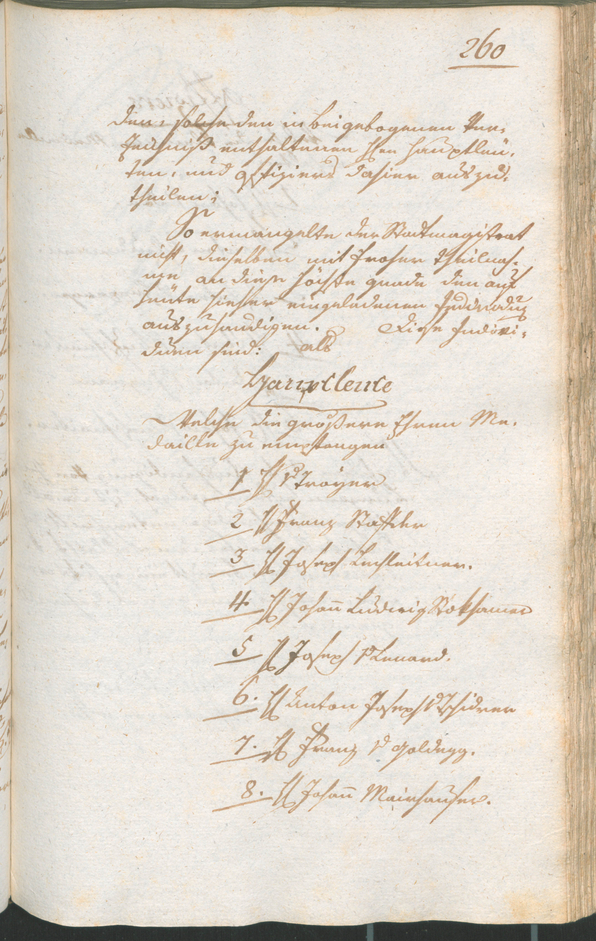 260
den, solche den in beigebogenen Ver,
zeichniß enthaltenen Hen Hauptleu,
ten, und Offiziers dahier auszu,
theilen;
So ermangelte der Stadtmagistrat
nicht, dieselben mit froher Theilnah,
me an diese höchste Gnade den auf
heute hieher eingeladenen Individuen
auszuhändigen. Diese Indivi,
duen sind: als
Hauptleute
Welche die größere Ehren Me,
daille zu empfangen
1 H v Troyer
2 H Franz Stafler
3 H Joseph Lechleitner.
4 H Johann Ludwig
5 H Joseph v Lenard.
6. H Anton Joseph v Tschidrer
7. H Franz v Goldegg.
8. H Johann Mairhauser.